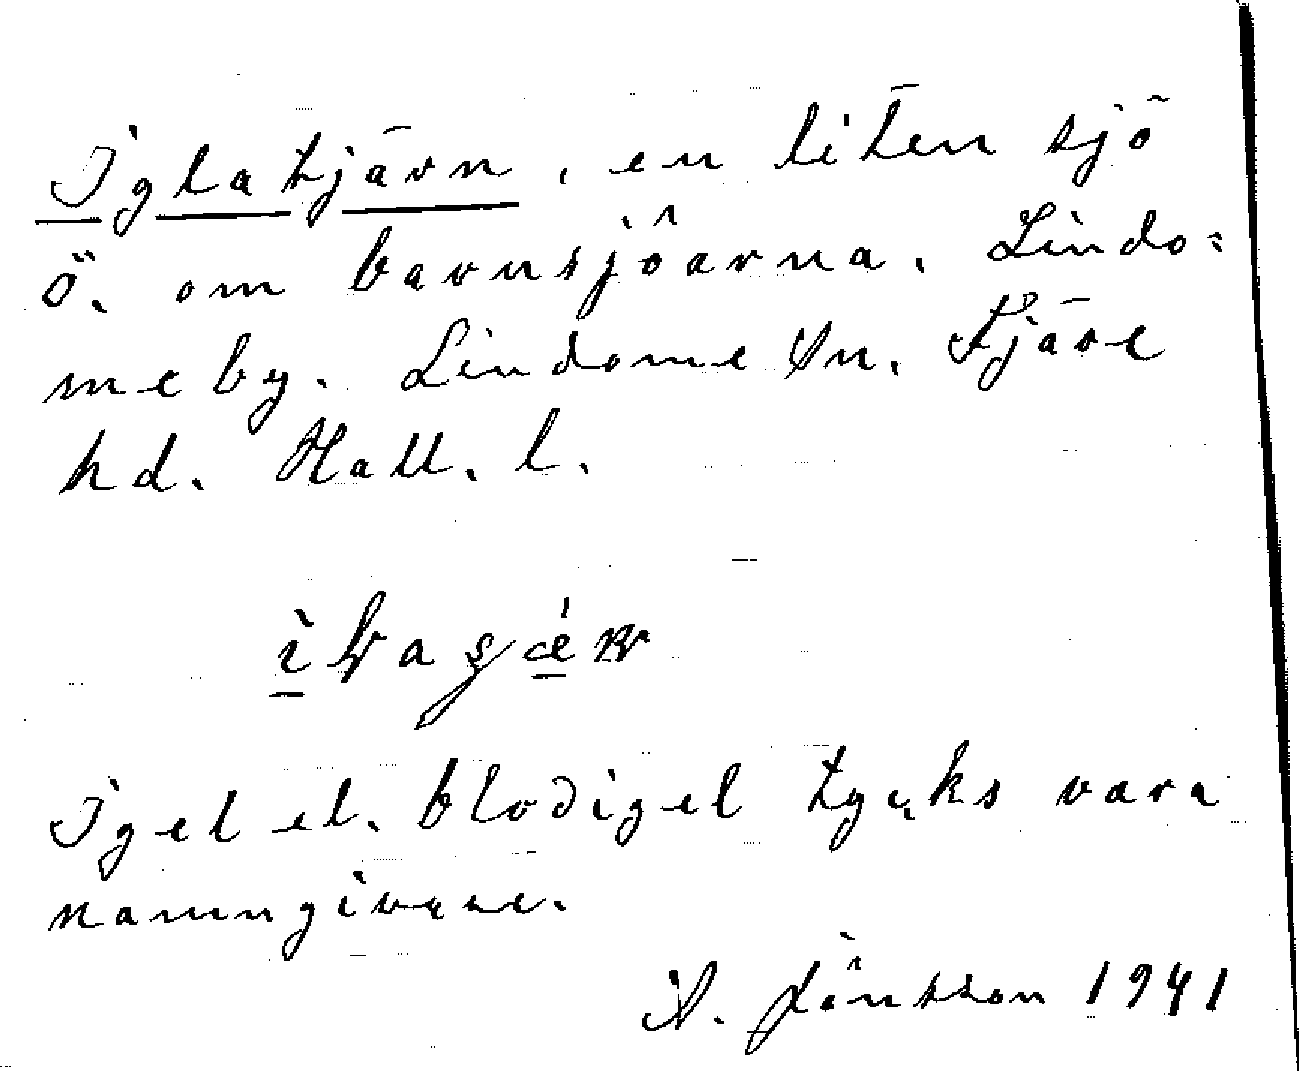 Iglatjärn, en liten sjö
ö. om barnsjöarna. Lindo=
me by. Lindome sn. Fjäre
hd. Hall. l.
Igel el. blodigel tycks vara
namngivare.
A. Jönsson 1941